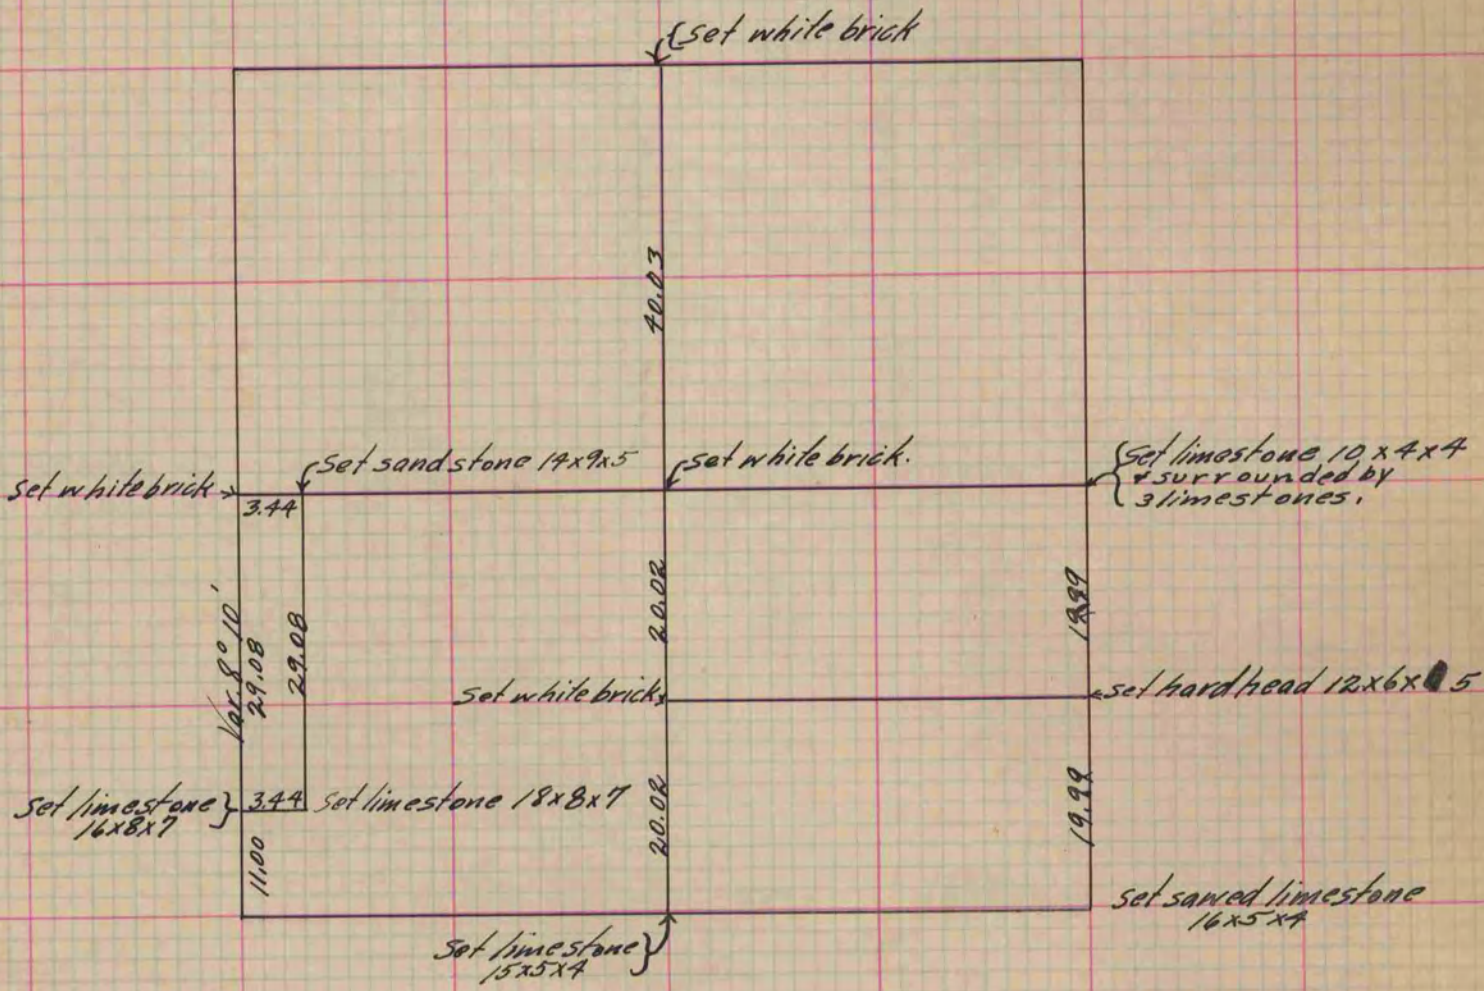 {set white brick
40.03
set sandstone 14x9x5
set white brick.
{set limestone 10 x 4 x 4
& surrounded by
3 limestones.
set white brick
3.44
Var. 8° 10'
29.08
29.08
20.02
19.99
set white brick
set hardhead 12x6x 5
set limestone}
16x8x7
3.44
set limestone 18x8x7
11.00
20.02
19.99
set sawed limestone
16x5x4
set limestone}
15x5x4